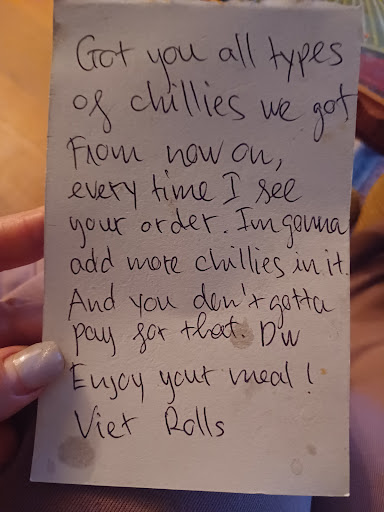 Got you all types
of chillies we got
From now on,
every time I see
your order. I'm gonna
add more chillies in it.
And you don't gotta
pay for that. DW
Enjoy your meal!
Viet Rolls